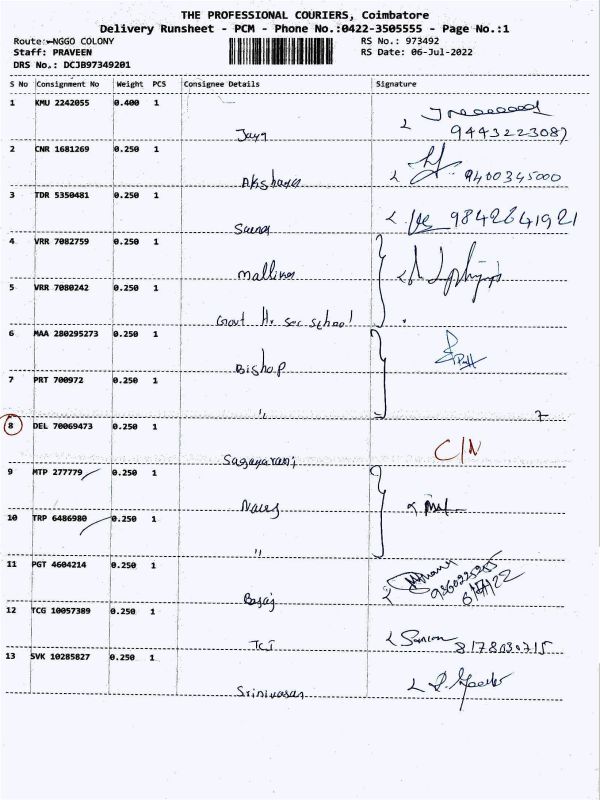 THE PROFESSIONAL COURIERS, Coimbatore
Delivery Runsheet - PCM - Phone No.:0422-3505555 - Page No.:1
Route:-NGGO COLONY
RS No.: 973492
Staff: PRAVEEN
RS Date: 06-Jul-2022
DRS No.: DCJB97349201
S No Consignment No Weight PCS Consignee Details Signature
1 KMU 2242055 0.400 1
Jaya 9443223087
2 CNR 1681269 0.250 1
Akshaya 9400345000
3 TDR 5350481 0.250 1
9842641921
4 VRR 7082759 0.250 1
Mallika
5 VRR 7080242 0.250 1
Govt Hr sec school
6 MAA 280295273 0.250 1
Bishop
7 PRT 700972 0.250 1
"
8 DEL 70069473 0.250 1
Sagayarani C/N
9 MTP 277779 0.250 1
10 TRP 6486980 0.250 1
"
11 PGT 4604214 0.250 1
Bajaj
12 TCG 10057389 0.250 1
TCI
13 SVK 10285827 0.250 1
Srinivasan